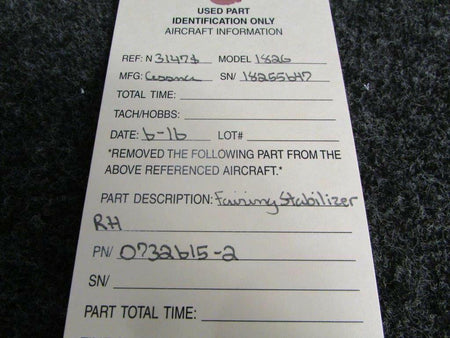 USED PART
IDENTIFICATION ONLY
AIRCRAFT INFORMATION
REF: N 31478 MODEL 182G
MFG: Cessna SN/ 18255647
TOTAL TIME:
TACH/HOBBS:
DATE: 6-16 LOT#
*REMOVED THE FOLLOWING PART FROM THE
ABOVE REFERENCED AIRCRAFT.*
PART DESCRIPTION: Fairing Stabilizer
RH
PN/ 0732615-2
SN/
PART TOTAL TIME: